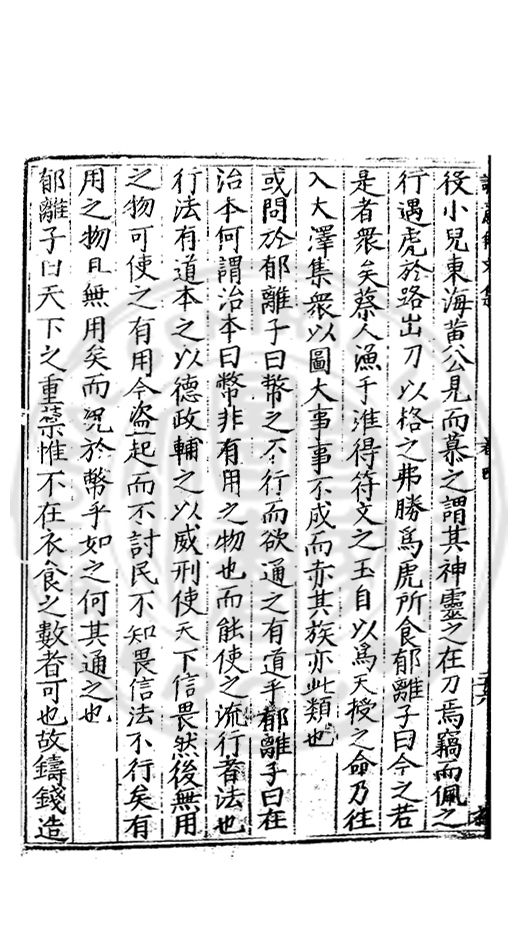 役小兒東海黃公見而慕之謂其神靈之在刀焉竊而佩之
行遇虎於路出刀以格之弗勝爲虎所食郁離子曰今之若
是者衆矣蔡人漁于淮得符文之玉自以爲天授之命乃往
入大澤集衆以圖大事事不成而赤其族亦此類也
或問於郁離子曰幣之不行而欲通之有道乎郁離子曰在
治本何謂治本曰幣非有用之物也而能使之流行者法也
行法有道本之以德政輔之以威刑使天下信畏然後無用
之物可使之有用今盜起而不討民不知畏信法不行矣有
用之物且無用矣而況於幣乎如之何其通之也
郁離子曰天下之重禁惟不在衣食之數者可也故鑄錢造